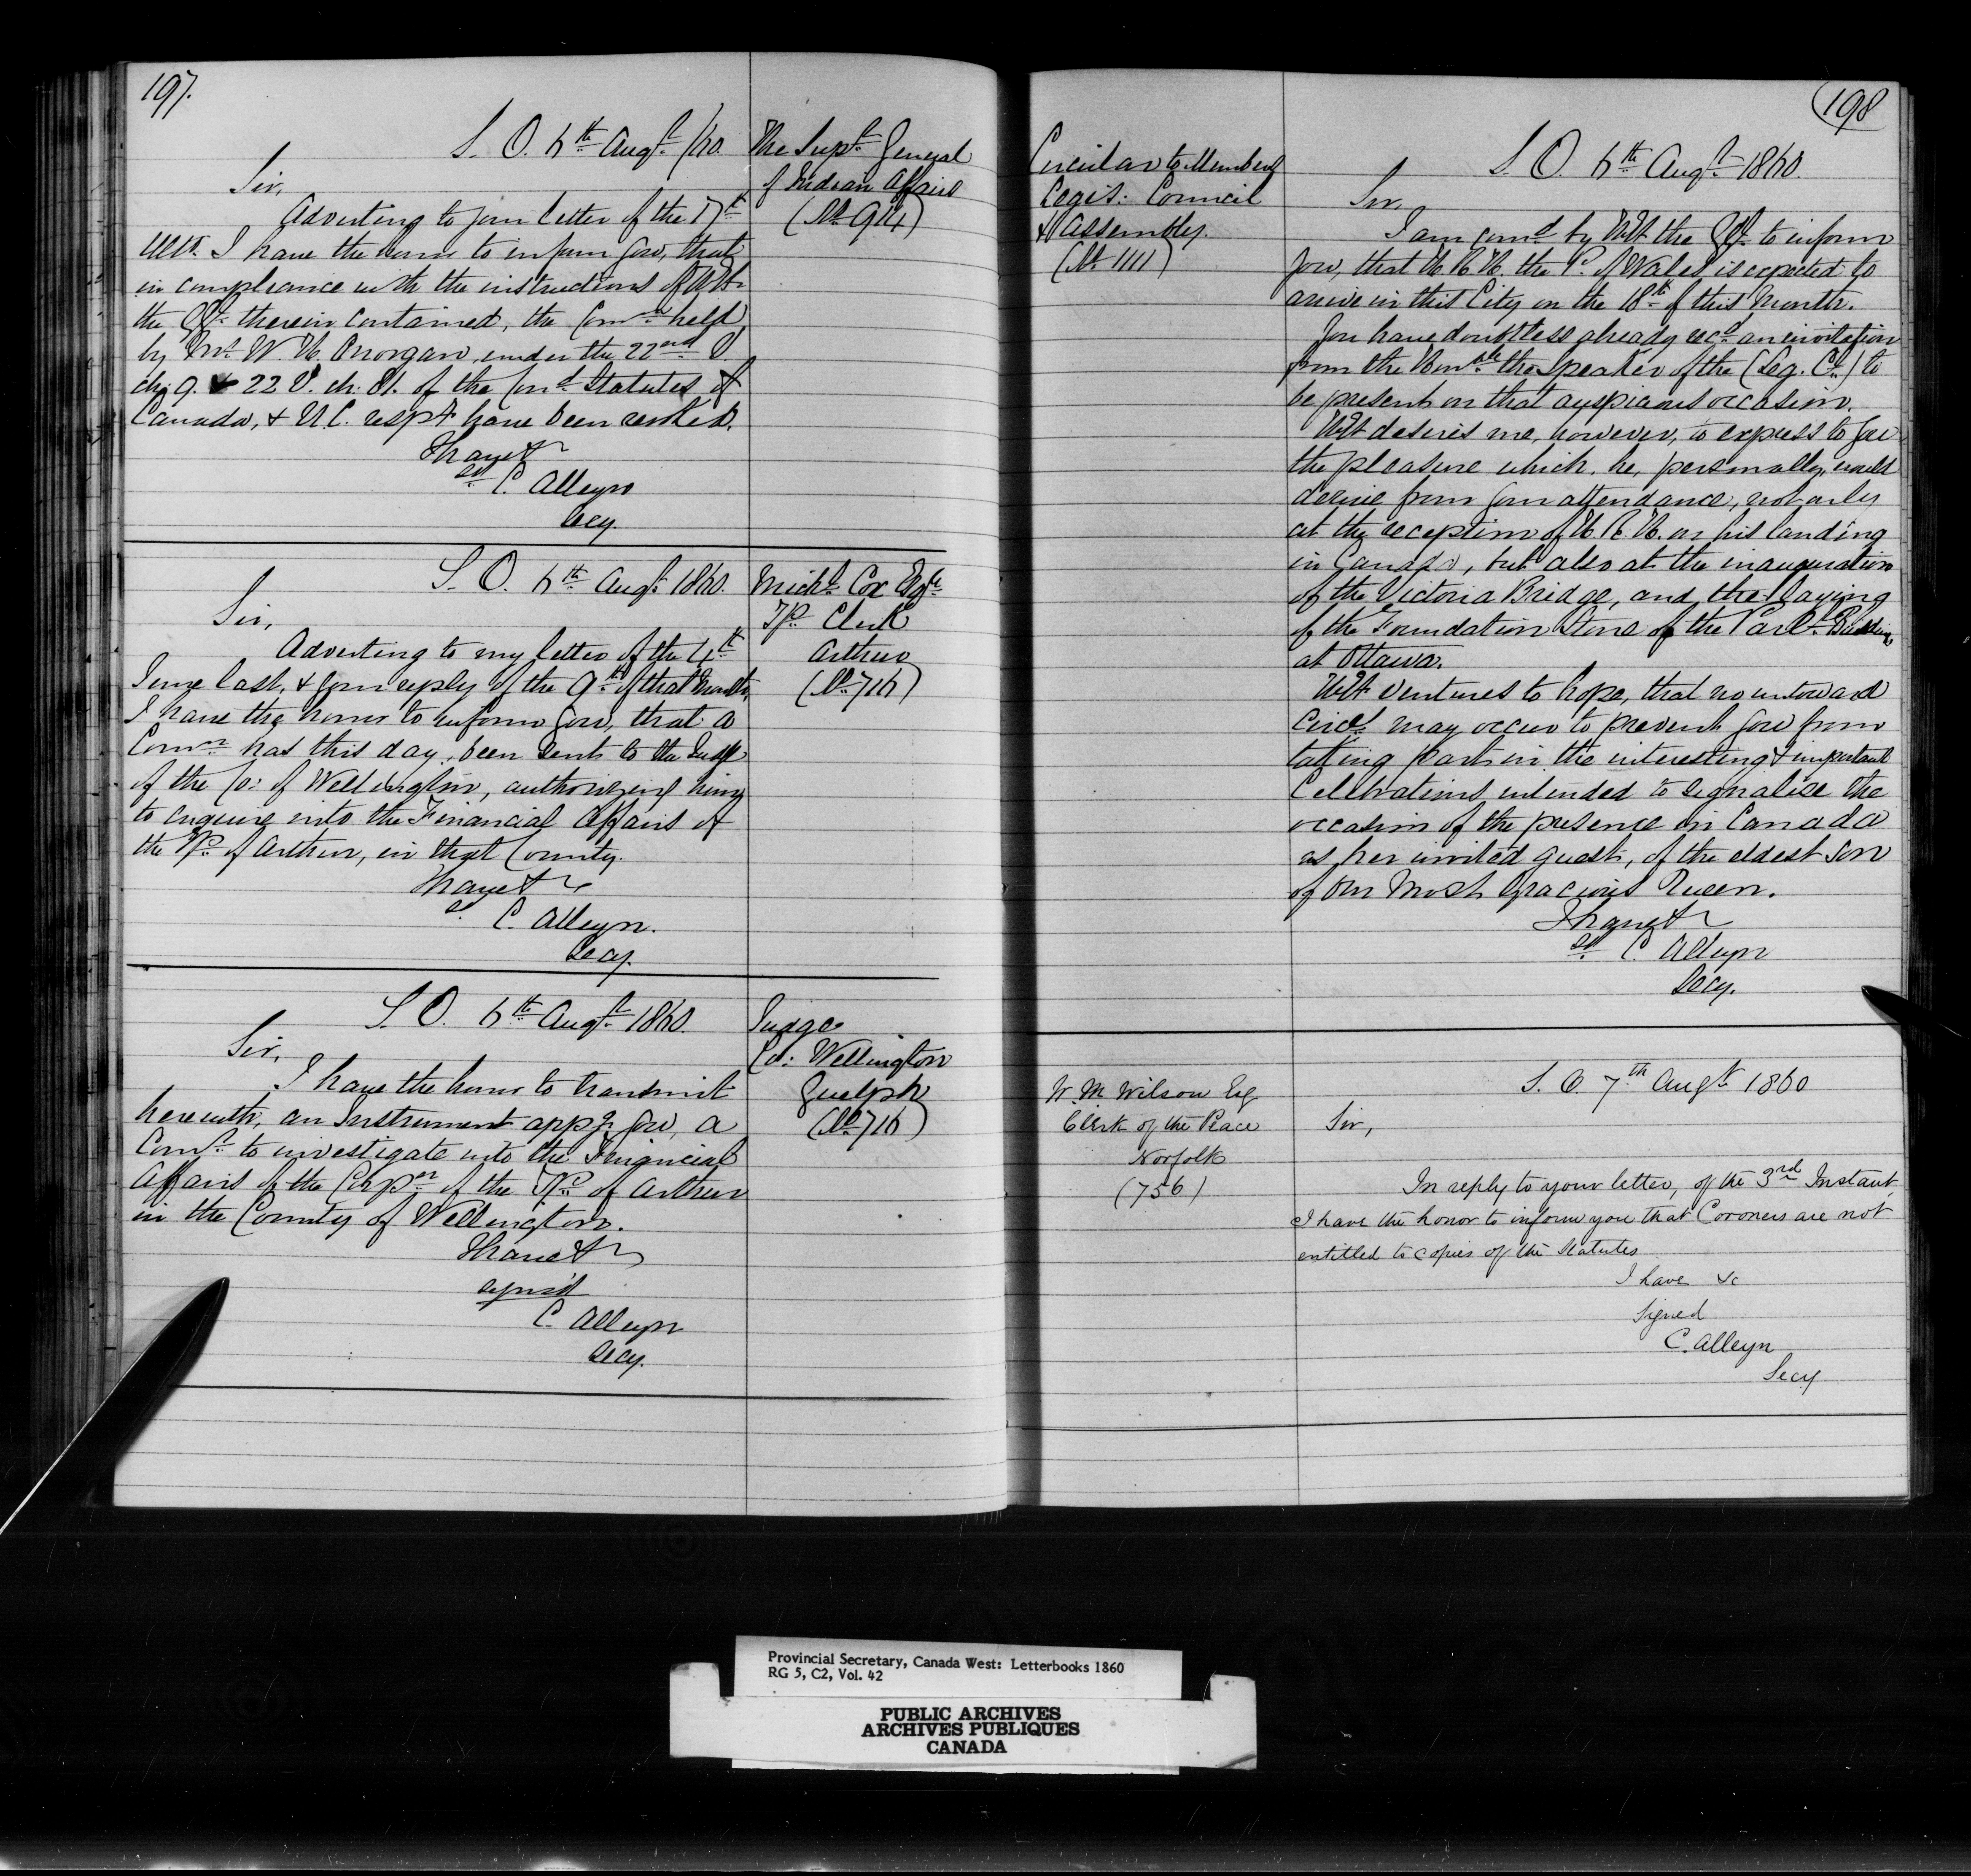 197.
S. O. 6th Augt. /60.
The Supt. General
of Indian Affairs
(No 914)
Sir,
Adverting to your letter of the 17th
Ulto. I have the honor to inform you, that
in compliance with the instructions of H.E.
the G.G. therein contained, the Comn. held
by Mr. W. H. under the 22nd V.
ch. 9. & 22 V. ch. 81. of the Cond. Statutes of
Canada, & U.C. respy have been revoked.
I have &
sd C. Alleyn
Secy.
S. O. 6th Augt. 1860.
Michl. Cox Esqre
Tp. Clerk
Arthur
(No. 716)
Sir,
Adverting to my letter of the 4th
June last, & your reply of the 9th of that month,
I have the honor to inform you, that a
Comn has this day, been sent to the Judge
of the Co: of Wellington, authorizing him
to enquire into the Financial Affairs of
the Tp. of Arthur, in that County.
I have &
sd. C. Alleyn.
Secy.
S. O. 6th Augt. 1860.
Judge
Co: Wellington
Guelph
(No. 716)
Sir,
I have the honor to transmit
herewith, an Instrument appg. you, a
Comr. to investigate into the Financial
Affairs of the Corpon of the Tp. of Arthur
in the County of Wellington.
I have &
signed
C. Alleyn
Secy.
198
Circular to Members
Legis: Council
& Assembly.
(No. 1111)
S. O. 6th Augt. 1860.
Sir,
I am comd. by H.E. the G.G. to inform
you, that H. R. H. the P. of Wales is expected to
arrive in this City on the 18th of this Month.
You have doubtless already recd. an invitation
from the Honble. the Speaker of the (Leg. Cl.) to
be present on that auspicious occasion.
H.E. desires me, however, to express to you
the pleasure which, he, personally, would
derive from your attendance, not only
at the reception of H. R. H. on his landing
in Canada, but also at the inauguration
of the Victoria Bridge, and the laying
of the Foundation Stone of the Parlt. Buildings
at Ottawa.
H.E. ventures to hope, that no untoward
Circe. may occur to prevent you from
taking part in the interesting & important
Celebrations intended to signalise the
occasion of the presence in Canada
as her invited guest, of the eldest son
of our Most Gracious Queen.
I have &
sd C. Alleyn
Secy.
W. M. Wilson Esq
Clerk of the Peace
Norfolk
(756)
S. O. 7th Augt. 1860
Sir,
In reply to your letter, of the 3rd Instant,
I have the honor to inform you that Coroners are not
entitled to copies of the Statutes
I have &c
Signed
C. Alleyn
Secy
Provincial Secretary, Canada West: Letterbooks 1860
RG 5, C2, Vol. 42
PUBLIC ARCHIVES
ARCHIVES PUBLIQUES
CANADA